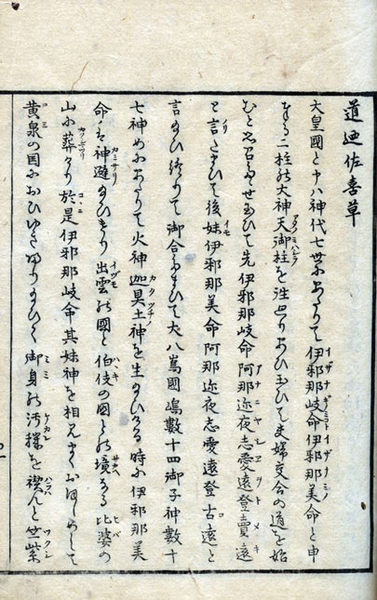 道迺佐喜草
大皇國と申ハ神代七世にあたりて伊邪那岐命伊邪那美命と申
二柱の大神天御柱を往めぐりあひ玉ひて夫婦交合の道を始
むと玉ひて先伊邪那岐命阿那迩夜志愛遠登賣遠
と言たまひて後妹伊邪那美命阿那弥夜志愛遠登古遠と
言たまひ終りて御合たまひて大八嶌國嶋數十四御子神數十
七神めにあたりて火神迦具土神を生たまへる時に伊邪那美
命は神避たまひき出雲の國と伯伎の国との境なる比婆の
山に葬めり於是伊邪那岐命其妹神を相見まくおほしめして
黄泉の国に御身の汚穢を禊んと竺紫